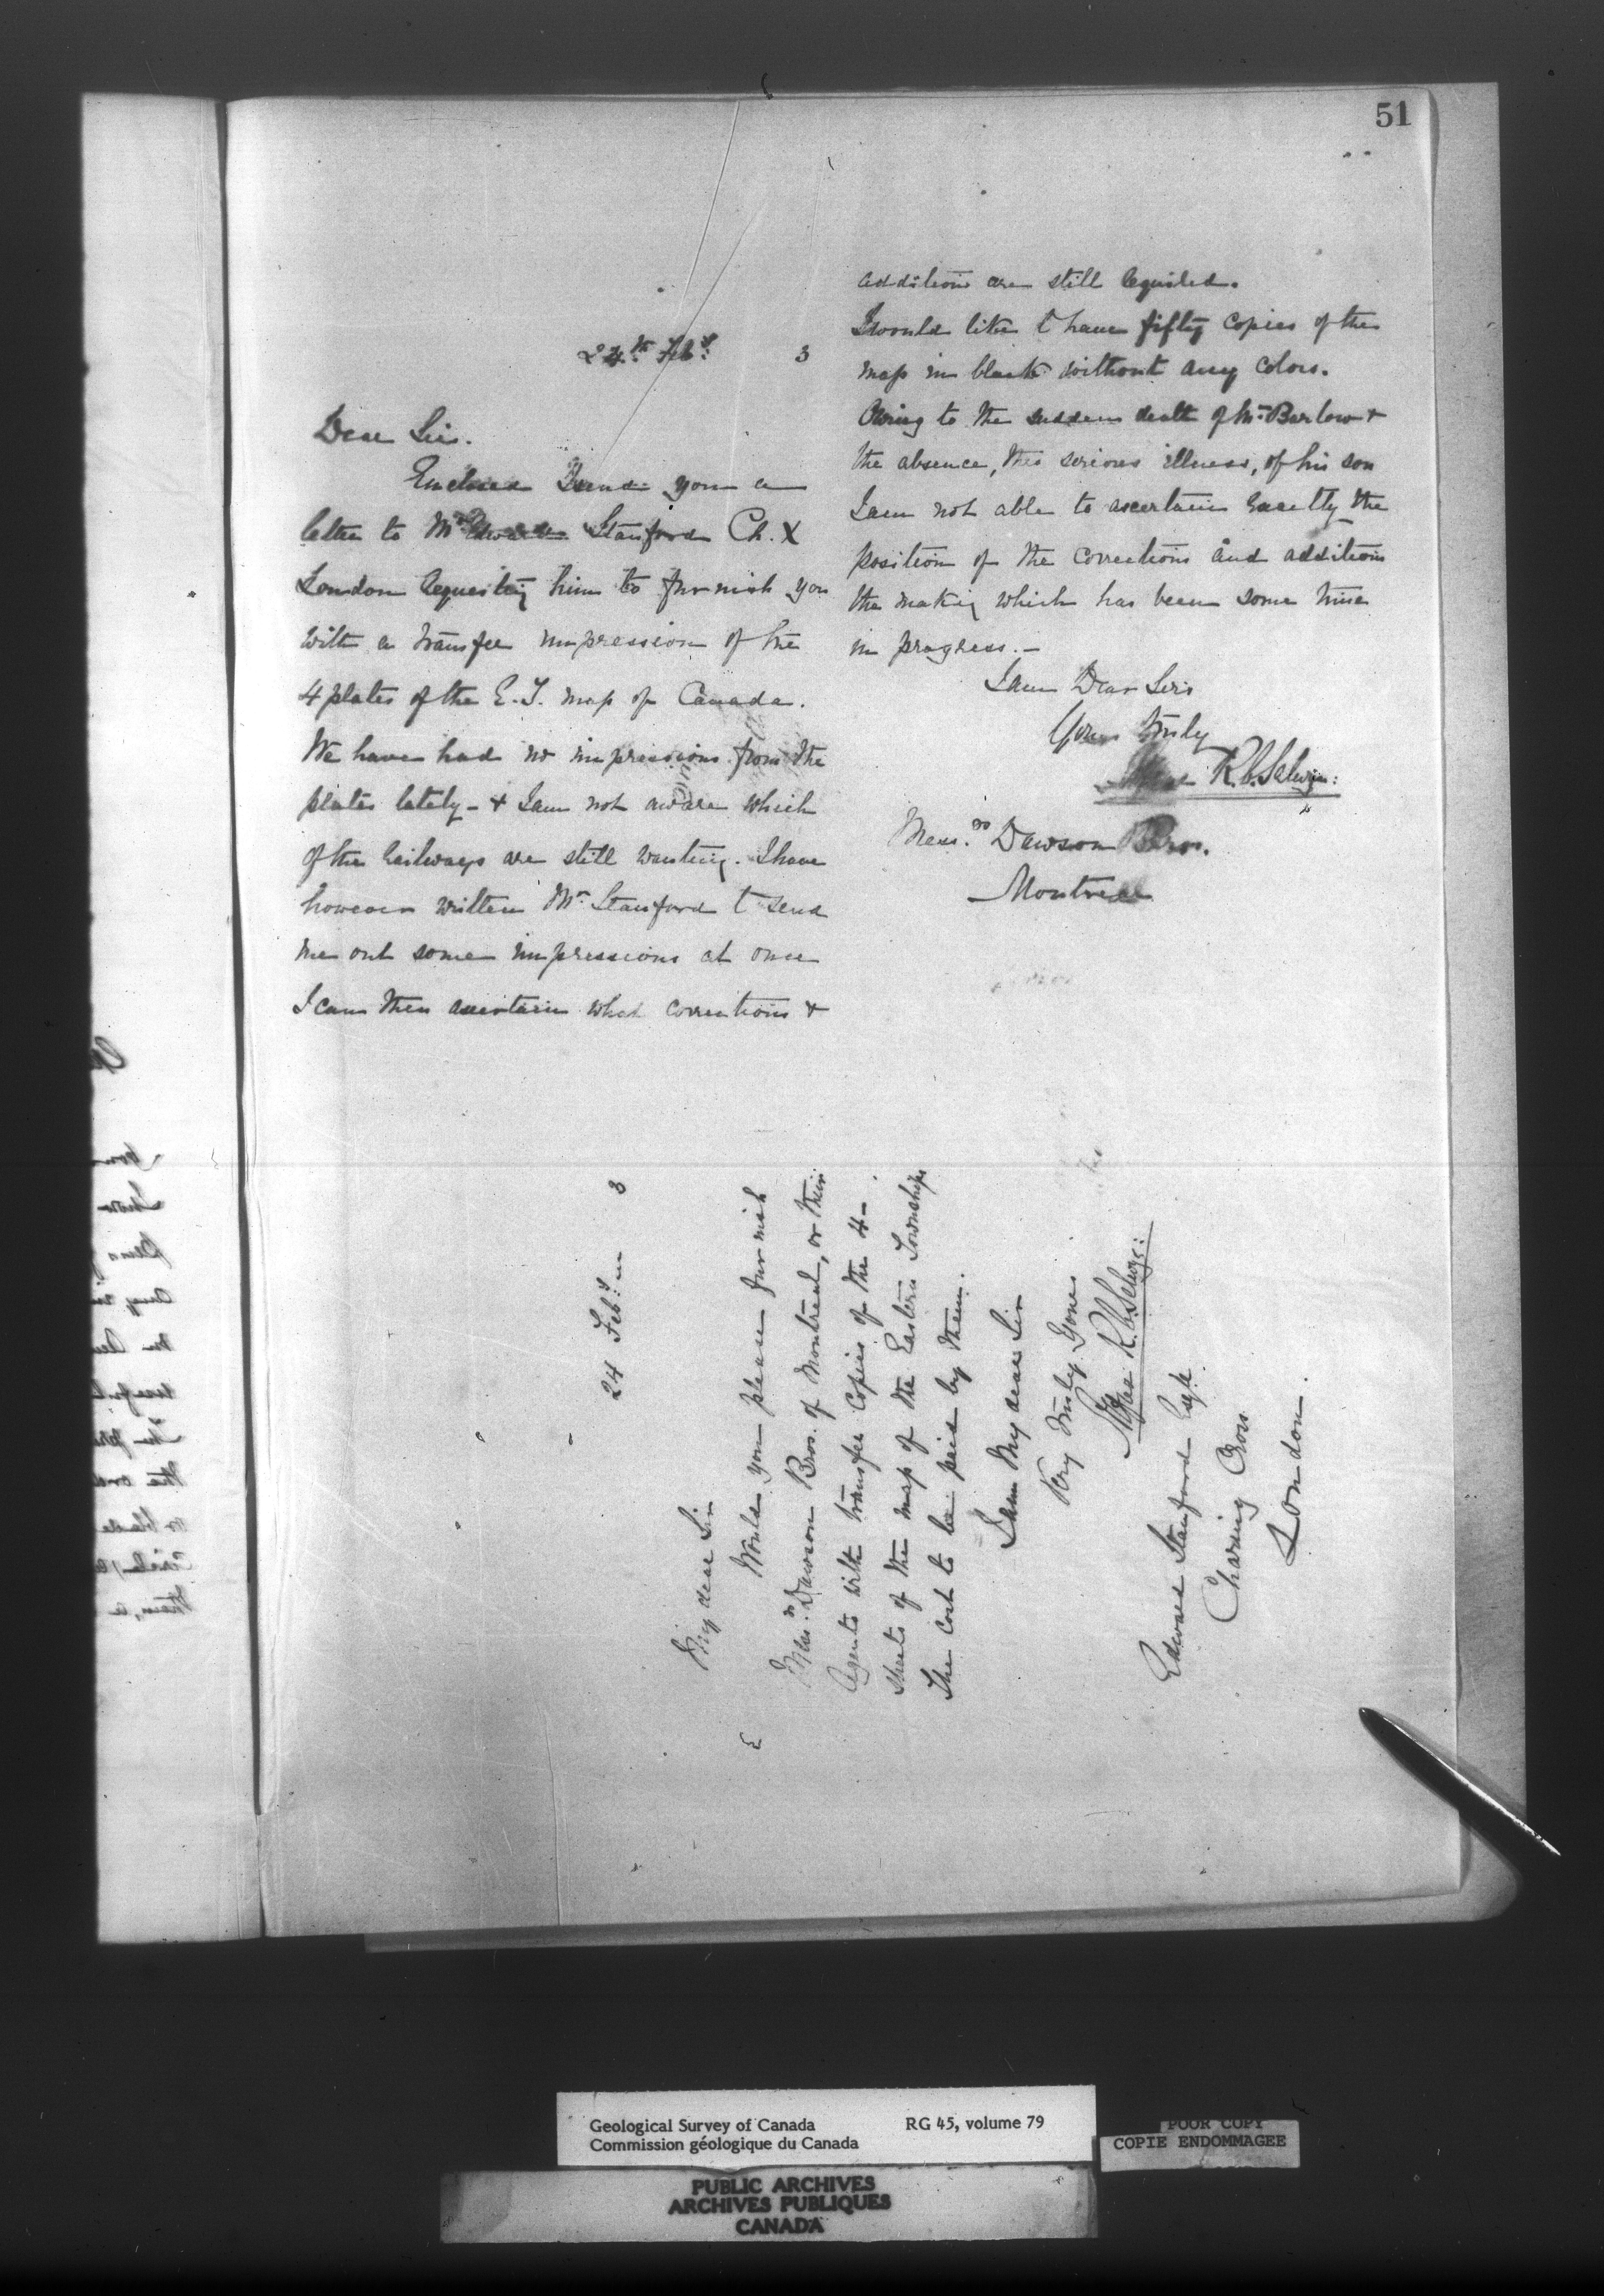 51
24th Feby. 3
Dear Sir.
Enclosed I send you a
letter to Mr Edward Stanford Ch. X
London requesting him to furnish you
with a transfer impression of the
4 plates of the E.T. map of Canada.
We have had no impressions from the
plates lately - & I am not aware which
of the railways are still wanting. I have
however written Mr Stanford to send
me out some impressions at once
I can then ascertain what corrections &
additions are still required.
I would like to have fifty copies of the
map in black without any colors.
Owing to the sudden death of Mr Barlow &
the absence, thro serious illness, of his son
I am not able to ascertain exactly the
position of the corrections and additions
the making which has been some time
in progress. -
I am Dear Sirs
Yours truly
R.C. Selwyn:
Messrs Dawson Bros.
Montreal
24 Feby 3
My dear Sir
Would you please furnish
Messrs Dawson Bros. of Montreal, or their
Agents with transfer copies of the 4-
sheets of the map of the Eastern Townships
The cost to be paid by them.
I am My dear Sir
Very truly Yours
R.C. Selwyn:
Edward Stanford Esq.
Charing Cross
London.
Geological Survey of Canada RG 45, volume 79
Commission géologique du Canada
POOR COPY
COPIE ENDOMMAGEE
PUBLIC ARCHIVES
ARCHIVES PUBLIQUES
CANADA